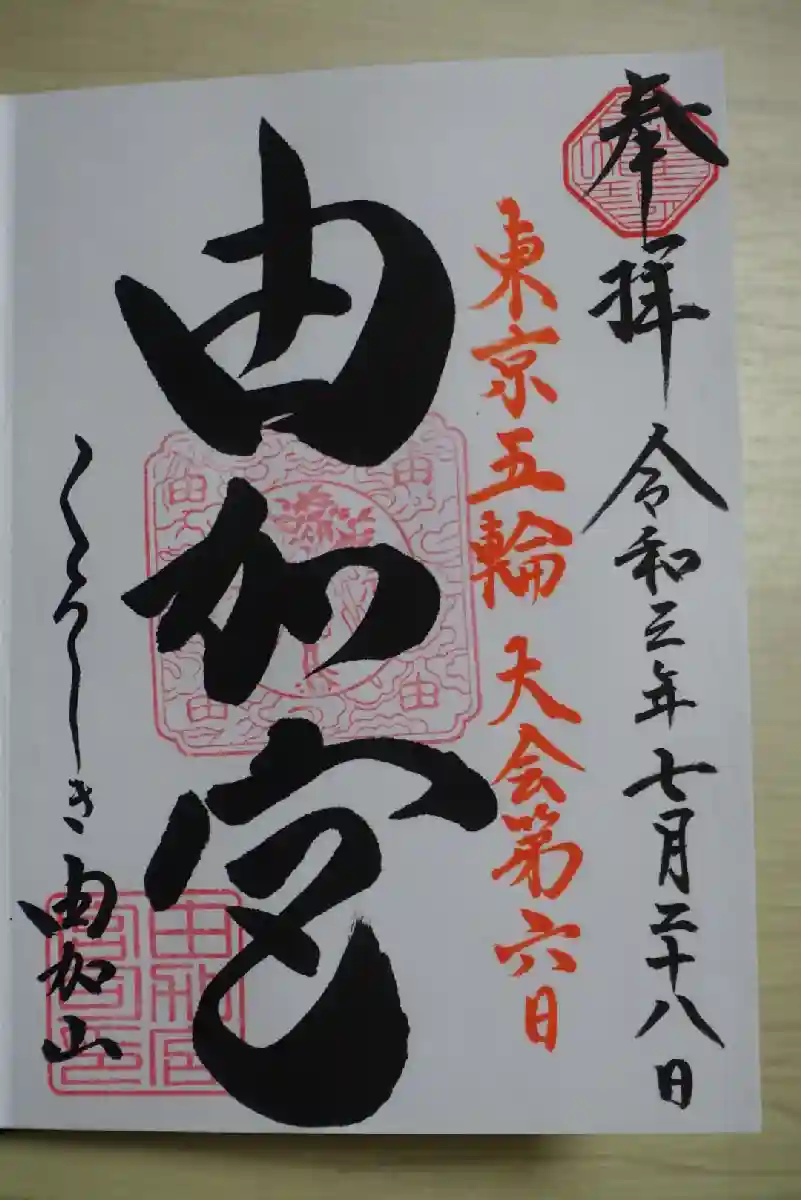 奉拝 令和三年七月二十八日
東京五輪 大会第六日
由加宮
くらしき 由加山